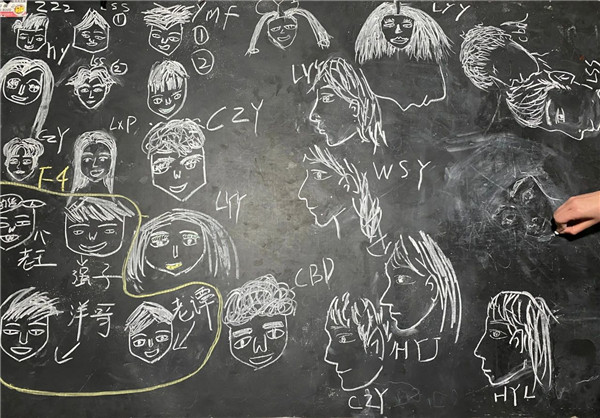 ZZZ
LSS
①
YMF
①
②
LYY
hy
LS
②
LYY
LSS
CZY
LXP
CZY
WSY
F4
LYY
老王
强子
CBD
洋哥
老谭
HYJ
CZY
HYL